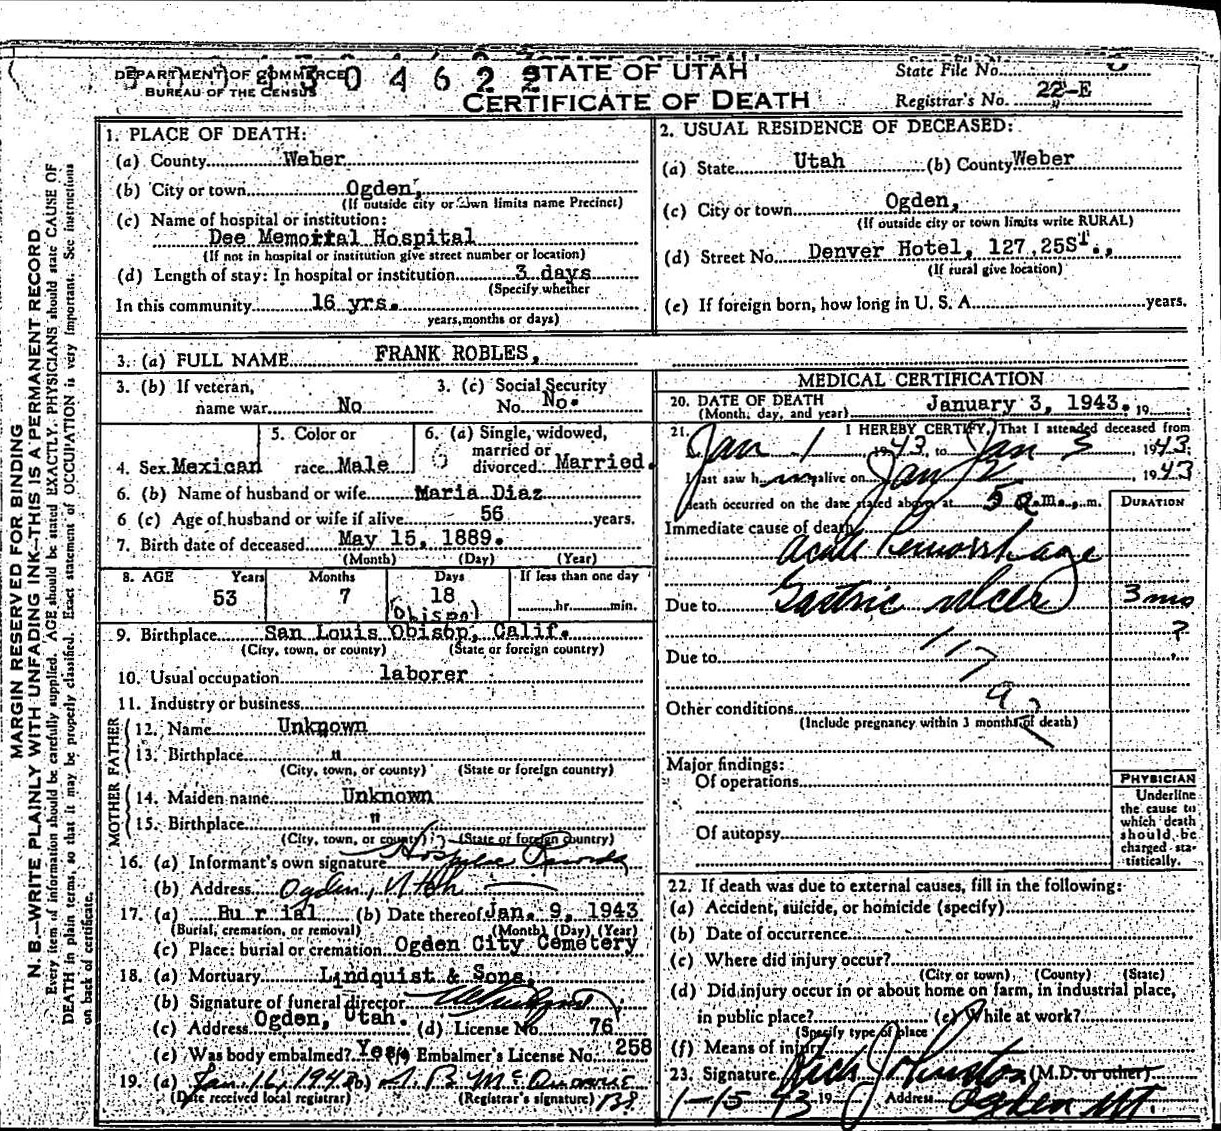 DEPARTMENT OF COMMERCE
BUREAU OF THE CENSUS
STATE OF UTAH
CERTIFICATE OF DEATH
State File No.
Registrar's No. 22-E
MARGIN RESERVED FOR BINDING
N. B.—WRITE PLAINLY WITH UNFADING INK—THIS IS A PERMANENT RECORD
Every item of information should be carefully supplied. AGE should be stated EXACTLY. PHYSICIANS should state CAUSE OF
DEATH in plain terms, so that it may be properly classified. Exact statement of OCCUPATION is very important. See instructions
on back of certificate.
1. PLACE OF DEATH:
(a) County Weber
(b) City or town Ogden,
(If outside city or town limits name Precinct)
(c) Name of hospital or institution:
Dee Memorial Hospital
(If not in hospital or institution give street number or location)
(d) Length of stay: In hospital or institution 3 days
(Specify whether
In this community 16 yrs.
years, months or days)
2. USUAL RESIDENCE OF DECEASED:
(a) State Utah (b) County Weber
(c) City or town Ogden,
(If outside city or town limits write RURAL)
(d) Street No. Denver Hotel, 127,25ST.,
(If rural give location)
(e) If foreign born, how long in U. S. A. years.
3. (a) FULL NAME FRANK ROBLES,
3. (b) If veteran,
name war No
3. (c) Social Security
No. No.
4. Sex Mexican
5. Color or
race Male
6. (a) Single, widowed,
married or
divorced Married.
6. (b) Name of husband or wife Maria Diaz
6 (c) Age of husband or wife if alive 56 years.
7. Birth date of deceased May 15, 1889.
(Month) (Day) (Year)
8. AGE Years Months Days If less than one day
53 7 18 hr. min.
(Obispo)
9. Birthplace San Louis Obisop, Calif.
(City, town, or county) (State or foreign country)
10. Usual occupation laborer
11. Industry or business
FATHER
12. Name Unknown
13. Birthplace "
(City, town, or county) (State or foreign country)
MOTHER
14. Maiden name Unknown
15. Birthplace "
(City, town, or county) (State or foreign country)
16. (a) Informant's own signature
(b) Address Ogden, Utah
17. (a) Burial (b) Date thereof Jan. 9, 1943
(Burial, cremation, or removal) (Month) (Day) (Year)
(c) Place: burial or cremation Ogden City Cemetery
18. (a) Mortuary Lindquist & Sons,
(b) Signature of funeral director
(c) Address Ogden, Utah. (d) License No. 76
(e) Was body embalmed? Yes Embalmer's License No. 258
19. (a) Jan. 16, 1943 (b)
(Date received local registrar) (Registrar's signature)
MEDICAL CERTIFICATION
20. DATE OF DEATH
(Month, day, and year) January 3, 1943. 19
21. I HEREBY CERTIFY, That I attended deceased from
Jan 1 1943, to Jan 3, 1943.
I last saw him alive on Jan 2, 1943
death occurred on the date stated above at 5 a.m. m.
DURATION
Immediate cause of death
acute hemorrhage
Due to Gastric ulcer 3 mo
?
Due to
117
Other conditions
(Include pregnancy within 3 months of death)
Major findings:
Of operations
Of autopsy
PHYSICIAN
Underline
the cause to
which death
should be
charged sta-
tistically.
22. If death was due to external causes, fill in the following:
(a) Accident, suicide, or homicide (specify)
(b) Date of occurrence
(c) Where did injury occur?
(City or town) (County) (State)
(d) Did injury occur in or about home on farm, in industrial place,
in public place? (e) While at work?
(Specify type of place
(f) Means of injury
23. Signature (M.D. or other)
1-15 43 19 Address Ogden Ut.